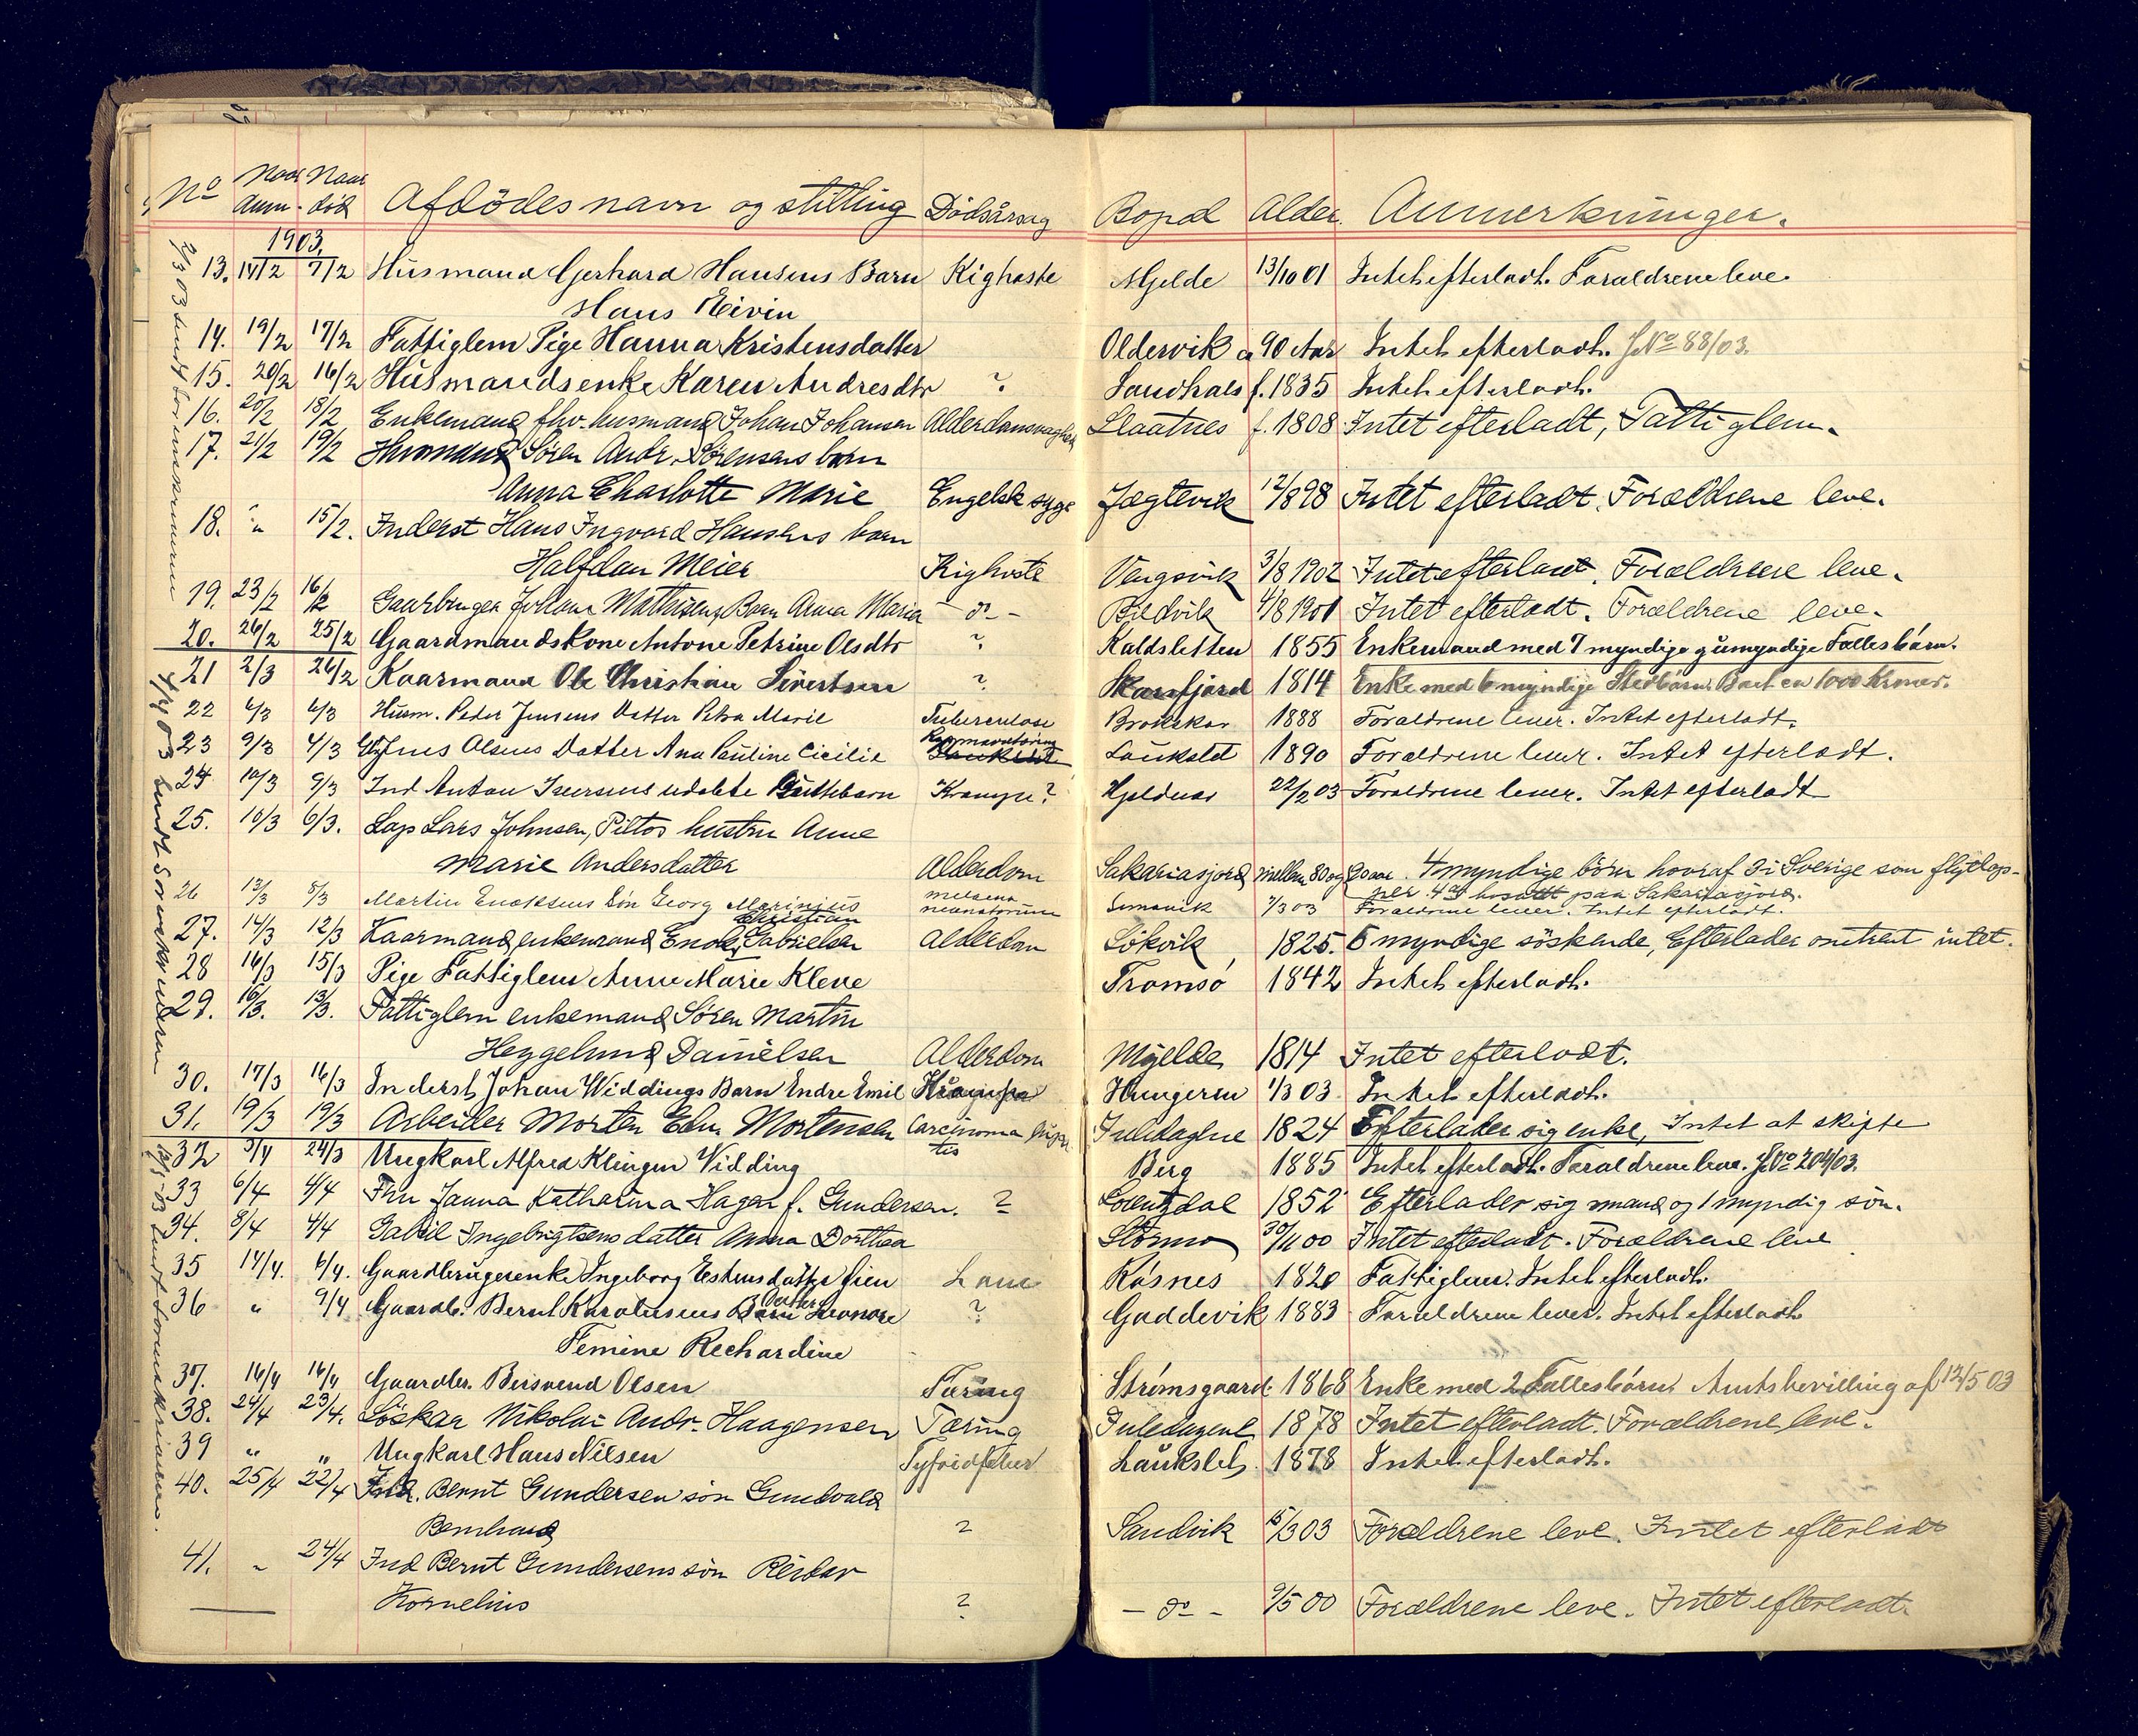 No Naar anm. Naar död Afdödes navn og stilling Dödsårsag Bopæl Alder. Anmerkninger.
1903.
13. 14/2 7/2 Husmand Gerhard Hansens Barn Kighoste Mjelde 13/10 01 Intet efterladt. Forældrene leve.
Hans Eivin
14. 19/2 17/2 Fattiglem Pige Hanna Kristensdatter Oldervik ca 90 Aar Intet efterladt. J No 88/03.
15. 20/2 16/2 Husmandsenke Karen Andresdtr ? Sandhals f. 1835 Intet efterladt.
16. 20/2 18/2 Enkemand fhv. husmand Johan Johansen Alderdomsvaghed Slaatnes f. 1808 Intet efterladt, Fattiglem.
17. 21/2 19/2 Husmand Sören Andr. Sörensens barn
Anna Charlotte Marie Engelsk syge Jægtevik 12/8 98 Intet efterladt. Forældrene leve.
18. " 15/2. Inderst Hans Ingvard Hansens barn
Halfdan Meier Kighoste Vengsvik 3/8 1902 Intet efterladt. Forældrene leve.
19. 23/2 16/2 Gaardbruger Johan Mathisens Barn Anna Maria - do - Bredvik 4/8 1901 Intet efterladt. Forældrene leve.
20. 26/2 25/2 Gaardmandskone Antone Petrine Olsdtr ? Kaldsletten 1855 Enkemand med 7 myndige g umyndige Fællesbörn.
21 2/3 26/2 Kaarmand Ole Christian Sivertsen ? Skarsfjord 1814 Enke med 6 myndige Stedbörn. Boet ca 1000 Kroner.
22 6/3 6/3 Husm. Peder Jensens Datter Petra Marie Tuberculose 1888 Forældrene lever. Intet efterladt.
23 9/3 4/3 Jens Olsens Datter Ana Pauline Cicilie Laukslet 1890 Forældrene lever. Intet efterladt.
24 10/3 9/3 Ind Anton Iversens udøbte Guttebarn Krampe? Hjeldnes 22/2 03 Forældrene lever. Intet efterladt
25. 10/3 6/3. Lap Lars Johnsen, Piltos hustru Anne
Marie Andersdatter Alderdom Sakariasjord mellem 80 og 90 aar. 4 myndige börn hvoraf 3 i Sverige som flytlap-
per. 4de bosatt paa Sakariasjord.
26 13/3 8/3 Martin Enoksens Sön Georg Marinius melæna neonatorum 7/3 03 Forældrene lever. Intet efterladt.
Christian
27. 14/3 12/3 Kaarmand, enkemand Enok Gabrielsen Alderdom Lökvik, 1825. 5 myndige söskende, Efterlader omtrent intet.
28 16/3 15/3 Pige Fattiglem Anne Marie Kleve Tromsö 1842 Intet efterladt.
29. 16/3. 13/3. Fattiglem enkemand Sören Martin
Heggelund Danielsen Alderdom Mjelde 1814 Intet efterladt.
30. 17/3 16/3 Inderst Johan Widdings Barn Endre Emil Krampe Hungeren 1/3 03 Intet efterladt.
31. 19/3 19/3 Arbeider Morten Edv. Mortensen Carcinoma Juledagene 1824 Efterlader sig enke, Intet at skifte
32 3/4 24/3 Ungkarl Alfred Klingen Vidding Berg 1885 Intet efterladt. Forældrene leve. J No 204/03.
33 6/4 4/4 Fru Janna Katharina Hagen f. Gundersen. ? Lorentzdal 1852 Efterlader sig mand og 1 myndig sön.
34. 8/4 4/4 Gabriel Ingebrigtsens datter Anna Dorthea Slörma 30/11 00 Intet efterladt. Forældrene leve
35 14/4. 6/4. Gaardbrugerenke Ingeborg Estensdatter Lien Lam Kösnes 1820 Fattiglem. Intet efterladt.
36 " 9/4 Gaardb. Bernt Karolusens Barn datter Leonore ? Gaddevik 1883 Forældrene lever. Intet efterladt
Femine Rechardine
37. 16/4 16/4 Gaardbr. Beisvend Olsen Tæring Strömsgaard. 1868 Enke med 2 Fællesbörn. Amtsbevilling af 12/5 03
38. 24/4 23/4. Löskar Nikolai Andr. Haagensen Tæring Juledagene 1878 Intet efterladt. Forældrene leve.
39 " " Ungkarl Hans Nilsen Tyfoidfeber Laukslet 1878 Intet efterladt.
40. 25/4 22/4 Ind. Bernt Gundersen sön Gundvald
Bernhard ? Sandvik 15/3 03 Forældrene leve. Intet efterladt
41. " 24/4 Ind Bernt Gundersens sön Reidar
Kornelius ? - do - 9/5 00 Forældrene leve. Intet efterladt.